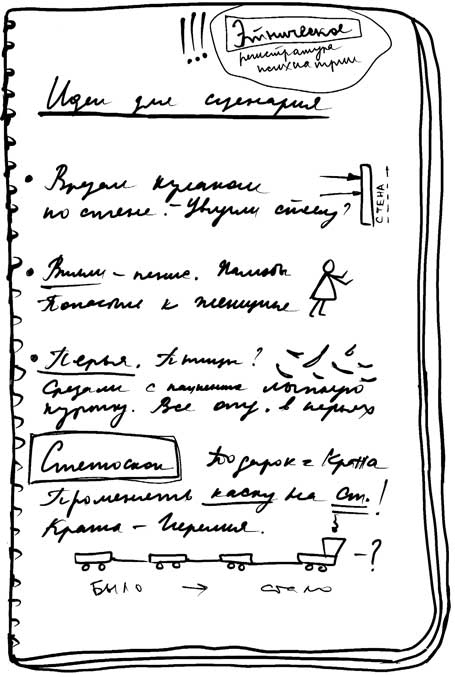 !!! Этническое
регистратура
психиатрии
Идеи для сценария
• Врезал кулаком
по стене. – Увезли стену?
СТЕНА
• Вилли – пение. Жалобы
Попастые к женщине
• Перья. Птицы?
Срезали с пациента лыжную
куртку. Все отд. в перьях
Стетоскоп Подарок = Кража
Променять каску на Ст.!
Кража – Терапия.
– ?
Было → стало